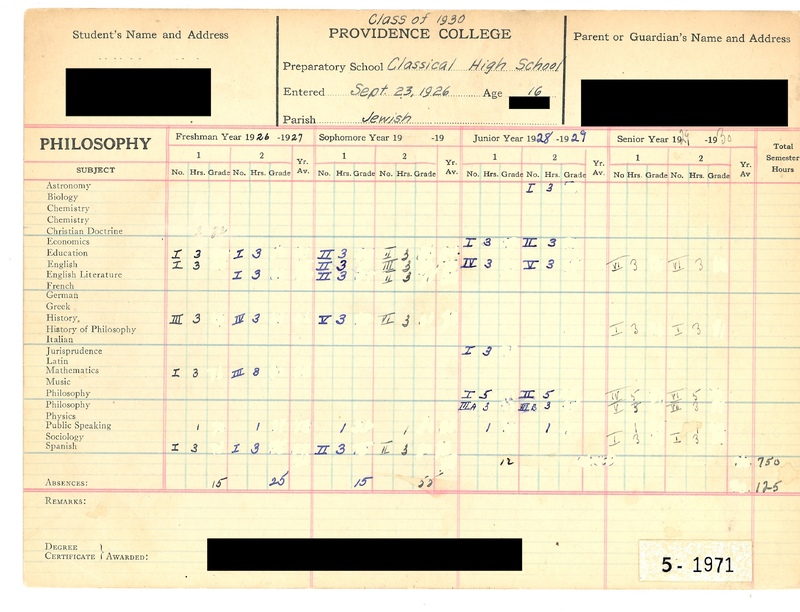 Class of 1930
Student's Name and Address
PROVIDENCE COLLEGE
Parent or Guardian's Name and Address
Preparatory School Classical High School
Entered Sept 23, 1926 Age 16
Parish Jewish
PHILOSOPHY
Freshman Year 1926 -1927 Sophomore Year 19 -19 Junior Year 1928 -1929 Senior Year 19 -1930
Total Semester Hours
1 2 Yr. Av. 1 2 Yr. Av. 1 2 Yr. Av. 1 2 Yr. Av.
SUBJECT No. Hrs. Grade No. Hrs. Grade No. Hrs. Grade No. Hrs. Grade No. Hrs. Grade No. Hrs. Grade No Hrs. Grade No. Hrs. Grade
Astronomy I 3
Biology
Chemistry
Chemistry
Christian Doctrine
Economics I 3 II 3
Education I 3 I 3 II 3 II 3
English I 3 II 3 III 3 IV 3 V 3 VI 3 VI 3
English Literature I 3 II 3 II 3
French
German
Greek
History III 3 IV 3 V 3 VI 3
History of Philosophy I 3 I 3
Italian
Jurisprudence I 3
Latin
Mathematics I 3 III 3
Music
Philosophy I 5 II 5 IV 5 VI 5
Philosophy III A 3 III B 3 V 3 VII 3
Physics
Public Speaking 1 1 1 1 1 1 1 1
Sociology I 3 I 3
Spanish I 3 I 3 II 3 II 3
12 750
ABSENCES: 15 25 15 22 125
REMARKS:
DEGREE
CERTIFICATE } AWARDED:
5 - 1971